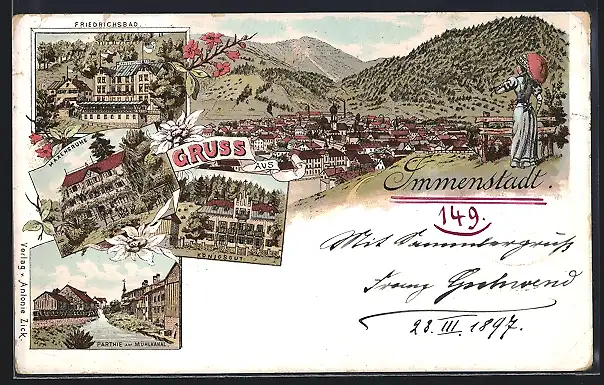 FRIEDRICHSBAD.
GRUSS
AUS
Immenstadt.
149.
KÖNIGSGUT
Mit Sammlergruß
Franz Gschwend
23. III. 1897.
PARTHIE AM MÜHLKANAL
Verlag v. Antonie Zick.